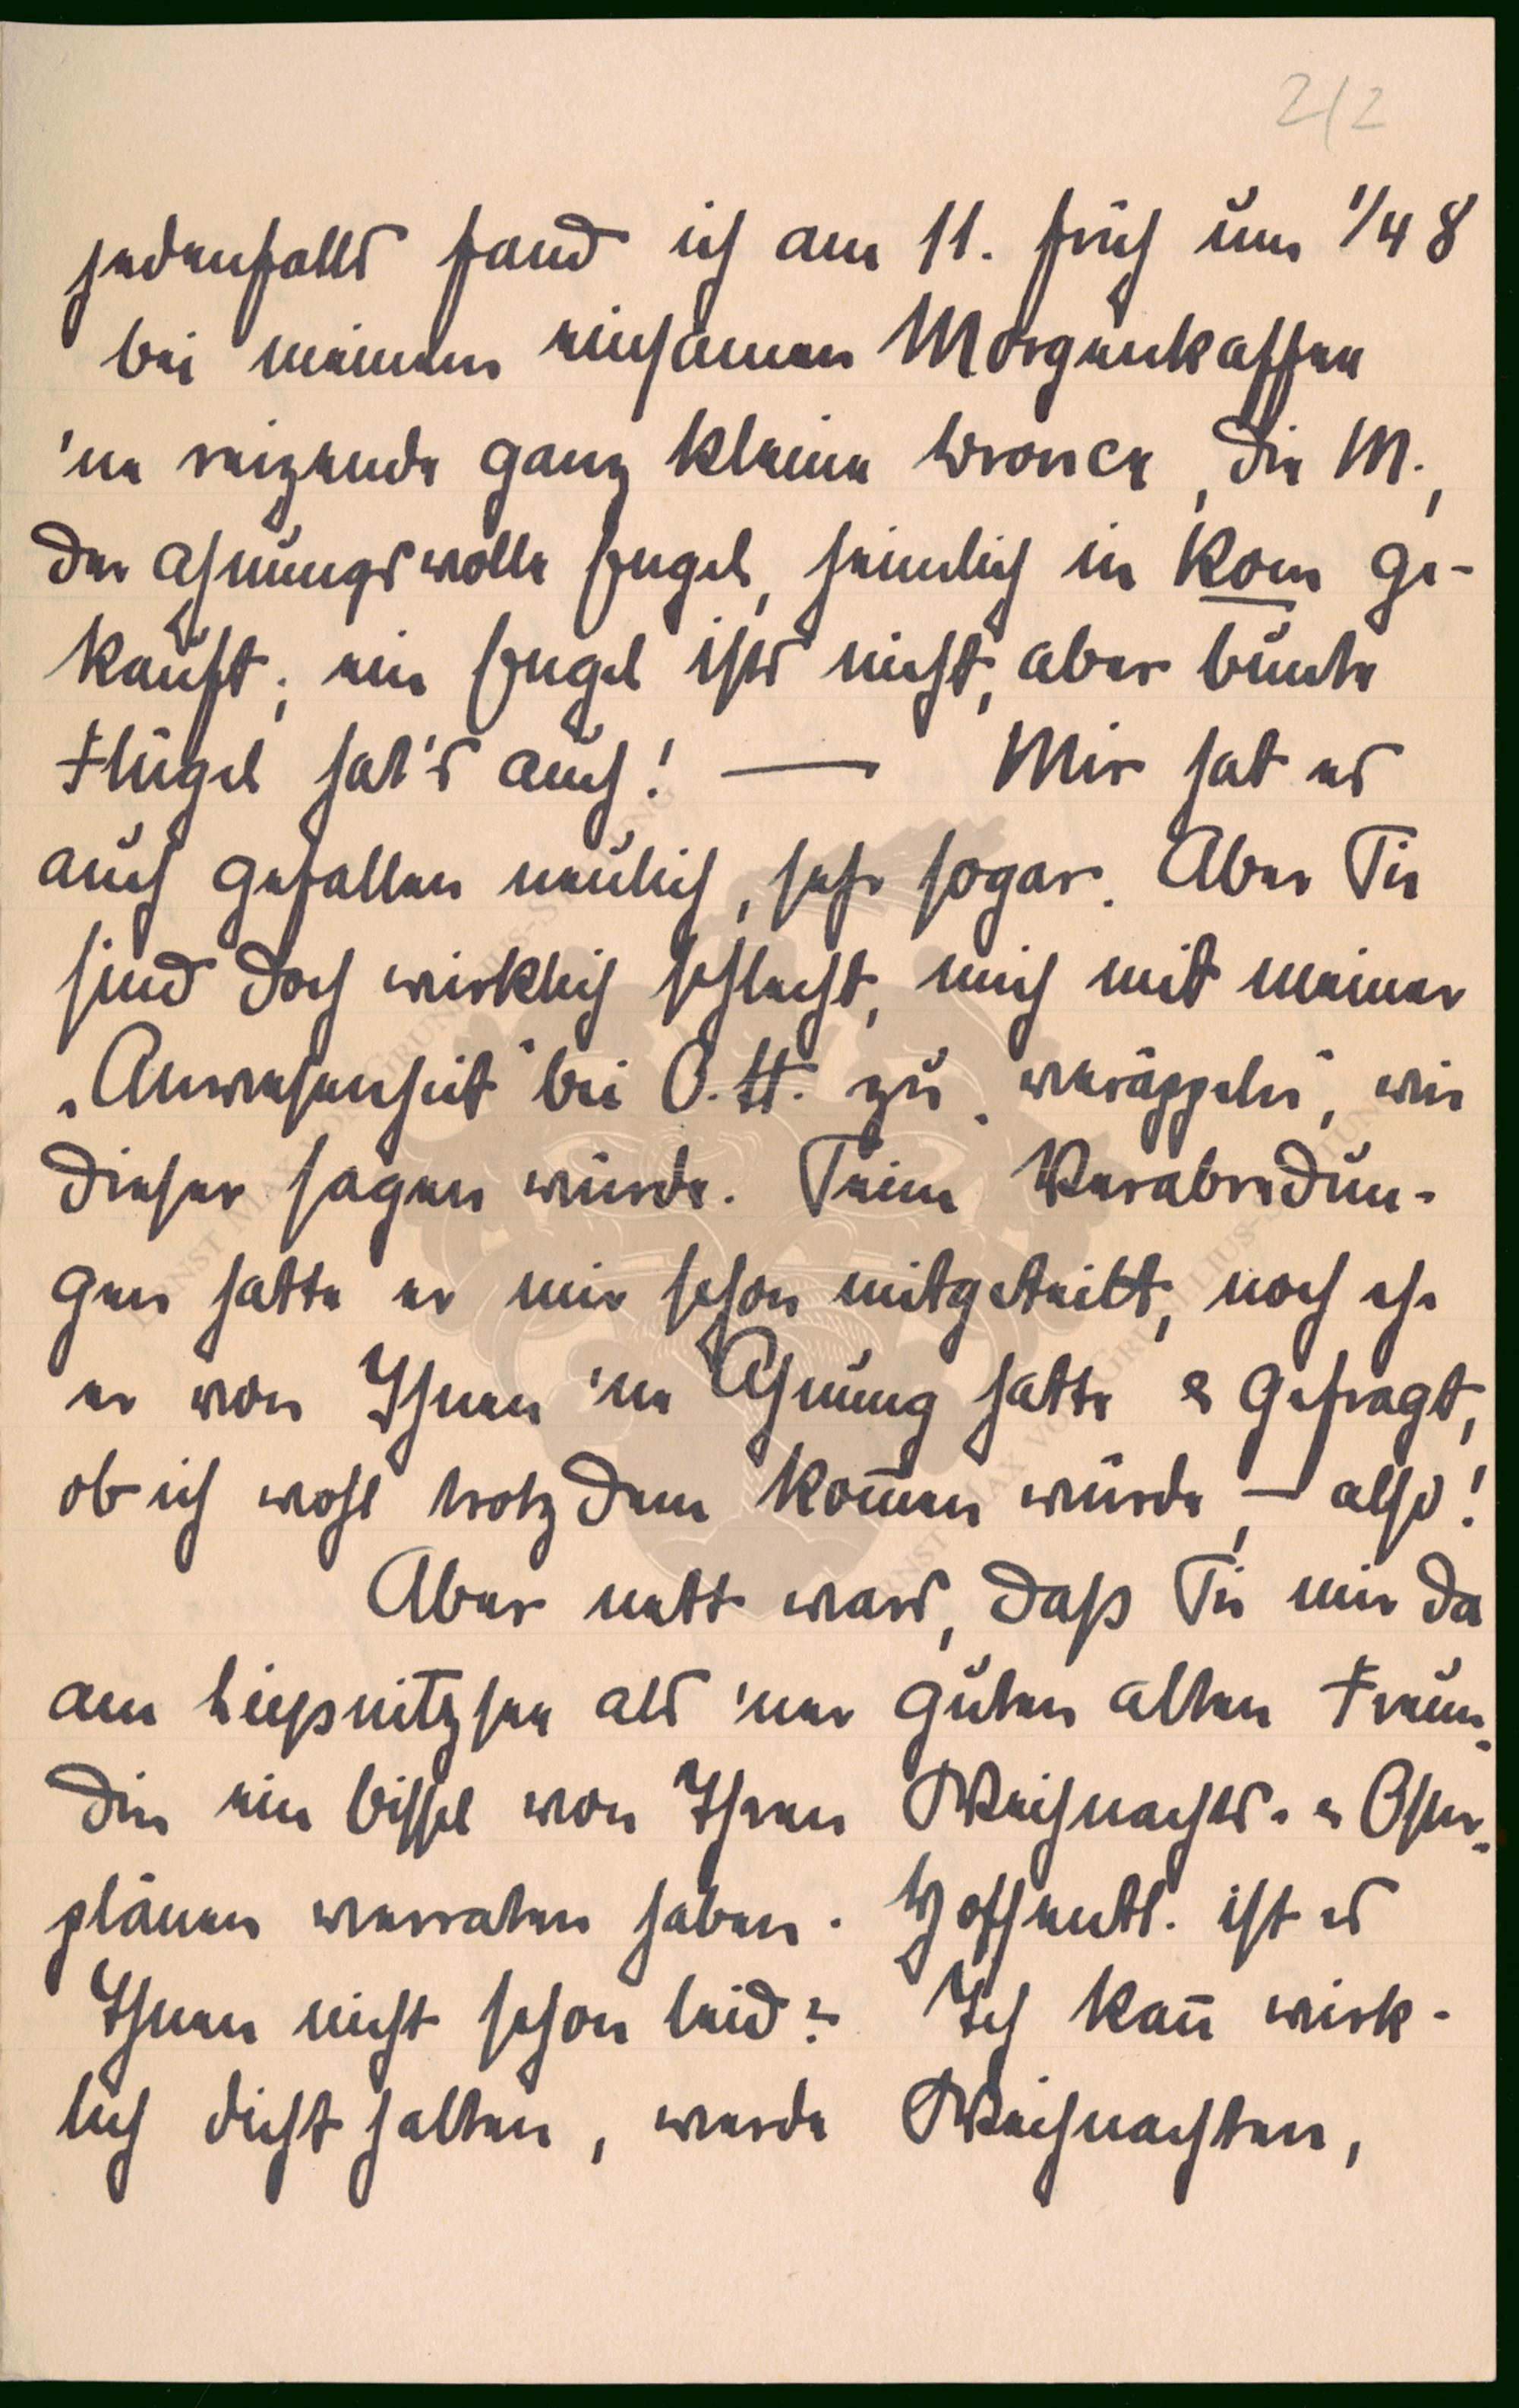 2/2
jedenfalls fand ich am 11. früh um 1/4 8
bei meinem einsamen Morgenkaffee
'ne reizende ganz kleine Bronce, die M.,
der ahnungsvolle Engel, heimlich in Rom ge-
kauft; ein Engel ists nicht, aber bunte
Flügel hat's auch! — Mir hat es
auch gefallen neulich, sehr sogar. Aber Sie
sind doch wirklich schlecht, mich mit meiner
„Anwesenheit" bei O. H. zu „veräppeln", wie
dieser sagen würde. Seine Verabredun-
gen hatte er mir schon mitgeteilt, noch eh
er von Ihnen 'ne Ahnung hatte & gefragt,
ob ich wohl trotzdem kom̄en würde, — also!
Aber nett wars, daß Sie mir da
am Liepnitzsee als 'ner guten alten Freun-
din ein bissel von Ihren Weihnachts- & Oster-
plänen verraten haben. Hoffentl. ist es
Ihnen nicht schon leid? Ich kan̄ wirk-
lich dicht halten, werde Weihnachten,
ERNST MAX VON GRUNELIUS-STIFTUNG